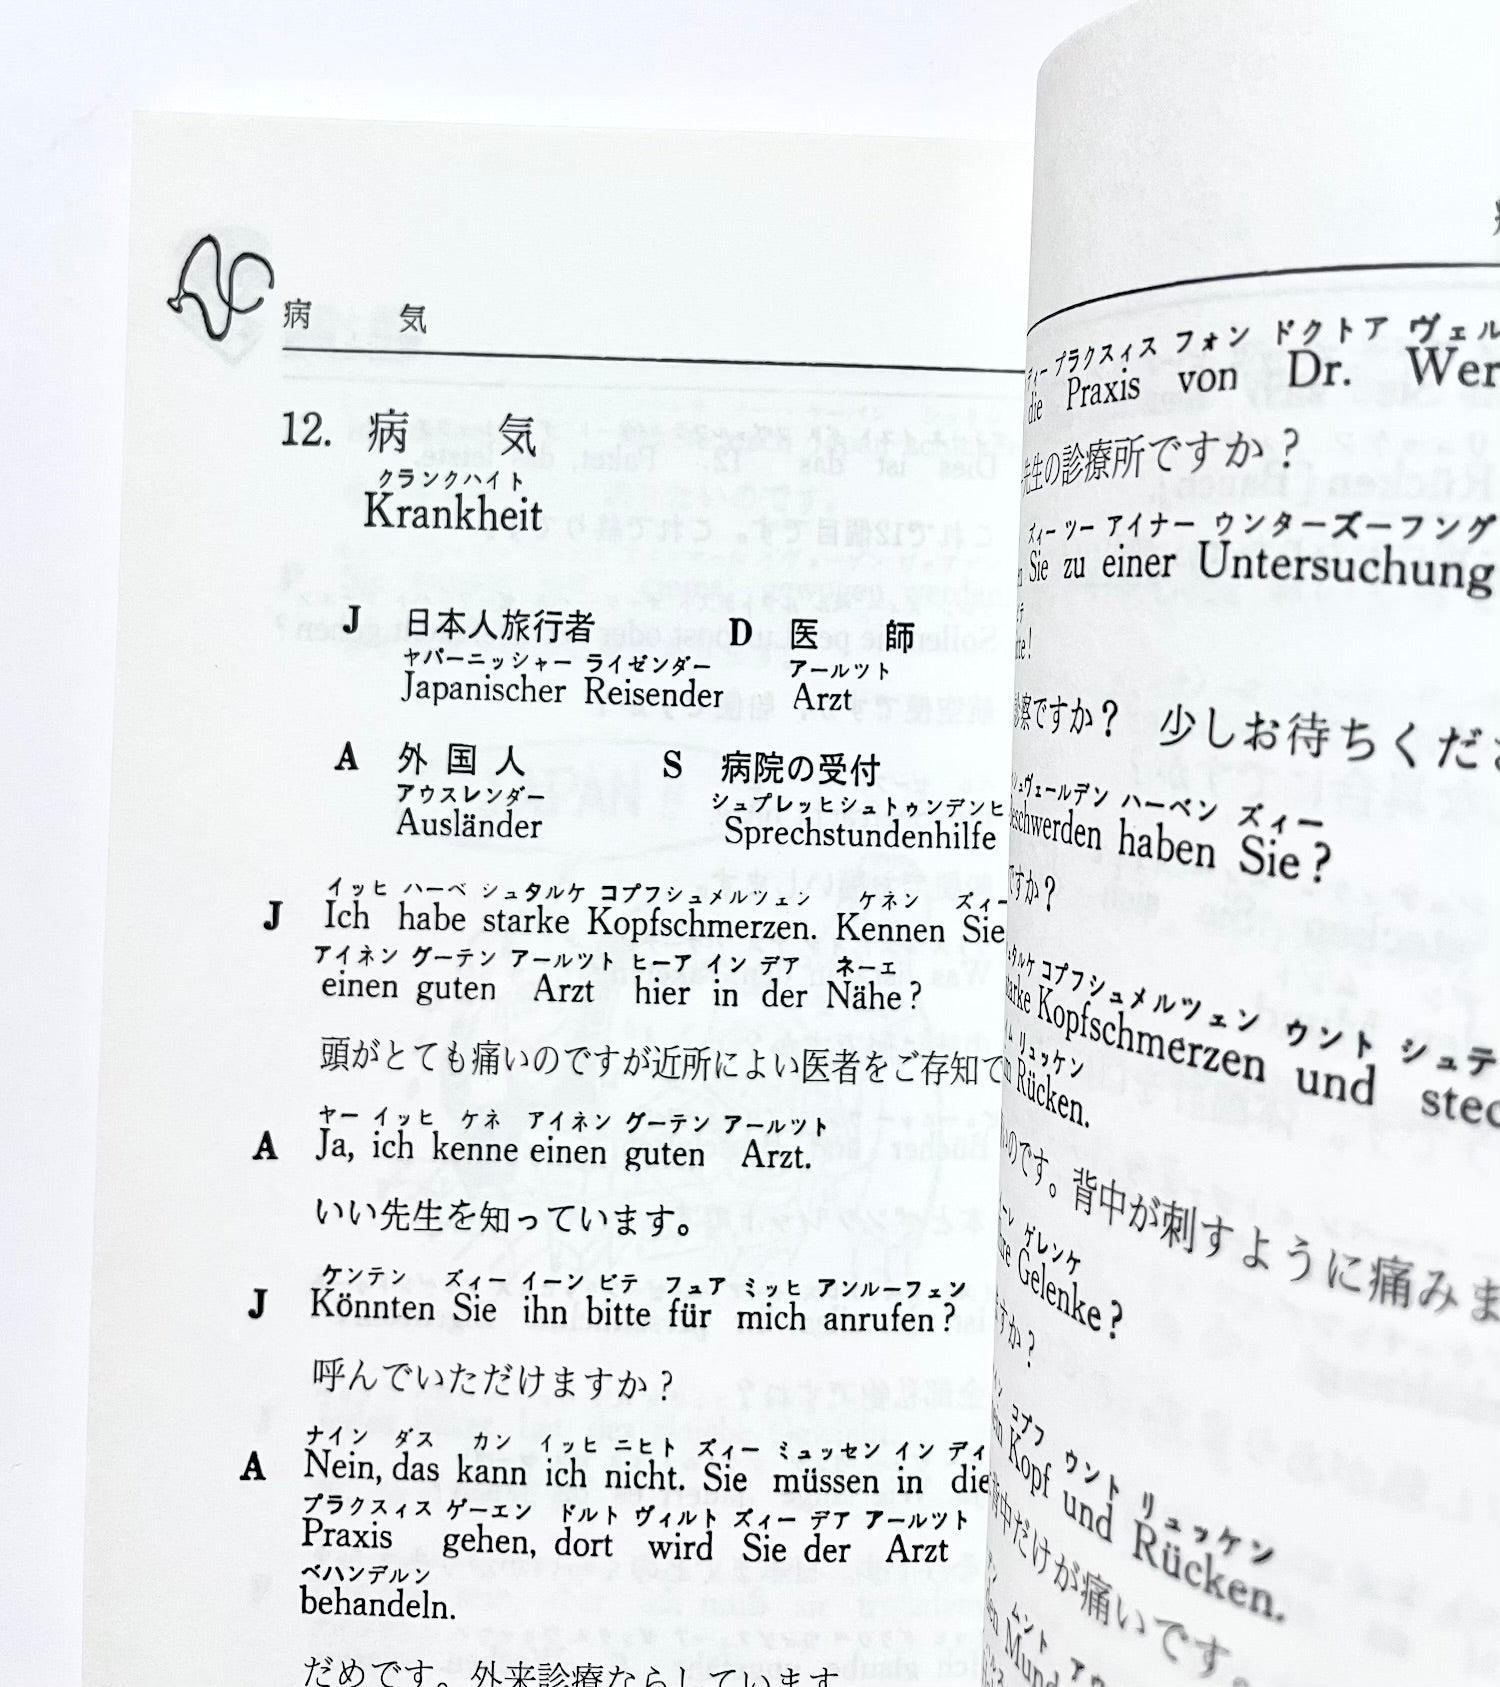 病 気
12. 病 気
クランクハイト
Krankheit
J 日本人旅行者 D 医 師
ヤパーニッシャー ライゼンダー アールツト
Japanischer Reisender Arzt
A 外 国 人 S 病院の受付
アウスレンダー シュプレッヒシュトゥンデンヒ
Ausländer Sprechstundenhilfe
イッヒ ハーベ シュタルケ コプフシュメルツェン ケネン ズィー
J Ich habe starke Kopfschmerzen. Kennen Sie
アイネン グーテン アールツト ヒーア イン デア ネーエ
einen guten Arzt hier in der Nähe?
頭がとても痛いのですが近所によい医者をご存知で
ヤー イッヒ ケネ アイネン グーテン アールツト
A Ja, ich kenne einen guten Arzt.
いい先生を知っています。
ケンテン ズィー イーン ビテ フュア ミッヒ アンルーフェン
J Könnten Sie ihn bitte für mich anrufen?
呼んでいただけますか?
ナイン ダス カン イッヒ ニヒト ズィー ミュッセン イン ディ
A Nein, das kann ich nicht. Sie müssen in die
プラクスィス ゲーエン ドルト ヴィルト ズィー デア アールツト
Praxis gehen, dort wird Sie der Arzt
ベハンデルン
behandeln.
だめです。外来診療ならしています
ディー プラクスィス フォン ドクトア ヴェル
die Praxis von Dr. Wer
先生の診療所ですか?
ズィー ツー アイナー ウンターズーフング
Sie zu einer Untersuchung
診察ですか? 少しお待ちくださ
シュヴェールデン ハーベン ズィー
eschwerden haben Sie?
ですか?
タルケ コプフシュメルツェン ウント シュテ
tarke Kopfschmerzen und stec
リュッケン
Rücken.
のです。背中が刺すように痛みま
ゲレンケ
Gelenke?
すか?
コプフ ウント リュッケン
Kopf und Rücken.
背中だけが痛いです。
ムント アウ
Mund